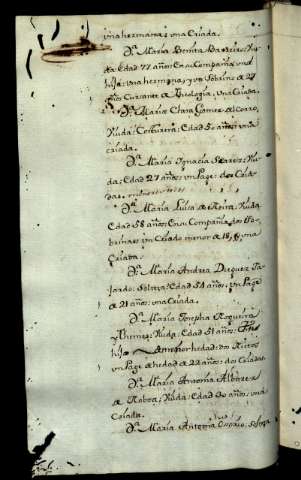 una hermana; una Criada.
Dª Maria Benita
Edad 77 años: En su Compañia una
hija: una hermana, y un Sobrino de 27
años Cursante de Theologia, una Criada.
Dª Maria Clara Gomez de Corro,
Viuda: Costurera: Edad 50 años: una
criada.
Dª Maria Ignacia
da: Edad 27 años: un Page: dos Cria
das.
Dª Maria Luisa de Neira, Viuda,
Edad 58 años: En su Compañia, dos So-
brinas: un Criado menor de 18, y una
Criada.
Dª Maria Andrea Dieguez Fa-
jardo: Soltera: Edad 54 años: un Page
de 21 años: una Criada.
Dª Maria Josepha Nogueira
Viuda: Edad 51 años:
hijo
un Page de hedad de 22 años: dos Criadas
Dª Maria Antonia Albarez
de Noboa; Viuda: Edad 30 años: una
Criada.
Dª Maria Antonia Osorio, Soltera